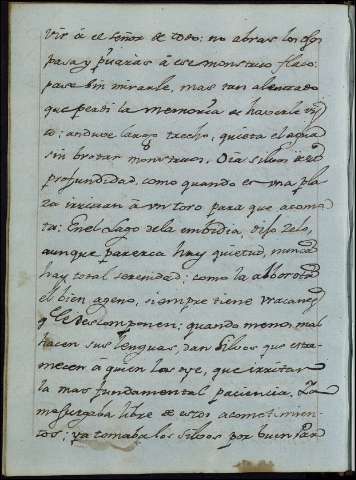 vir á el señor de todo: no abras los ojos
pasa y pisarás á ese monstruo flaco:
pase sin mirarle, mas tan alentado
que perdi la memoria de haverle vis
to; anduve largo trecho, quieta el agua
sin brotar monstruos. Oia silvos
profundidad, como quando en una pla
za irritan á un toro para que acome
ta: En el Lago de la embidia, dijo zelo,
aunque parezca hay quietud, nunca
hay total serenidad; como la alborota
el bien ageno, siempre tiene uracanes
q Le descomponen; quando menos mal
hacen sus lenguas, dan silvos que estre
mecen á quien los oye, que irritan
la mas fundamental paciencia. Ya
me juzgaba libre de estos acometimien
tos; ya tomaba los silvos por buen par